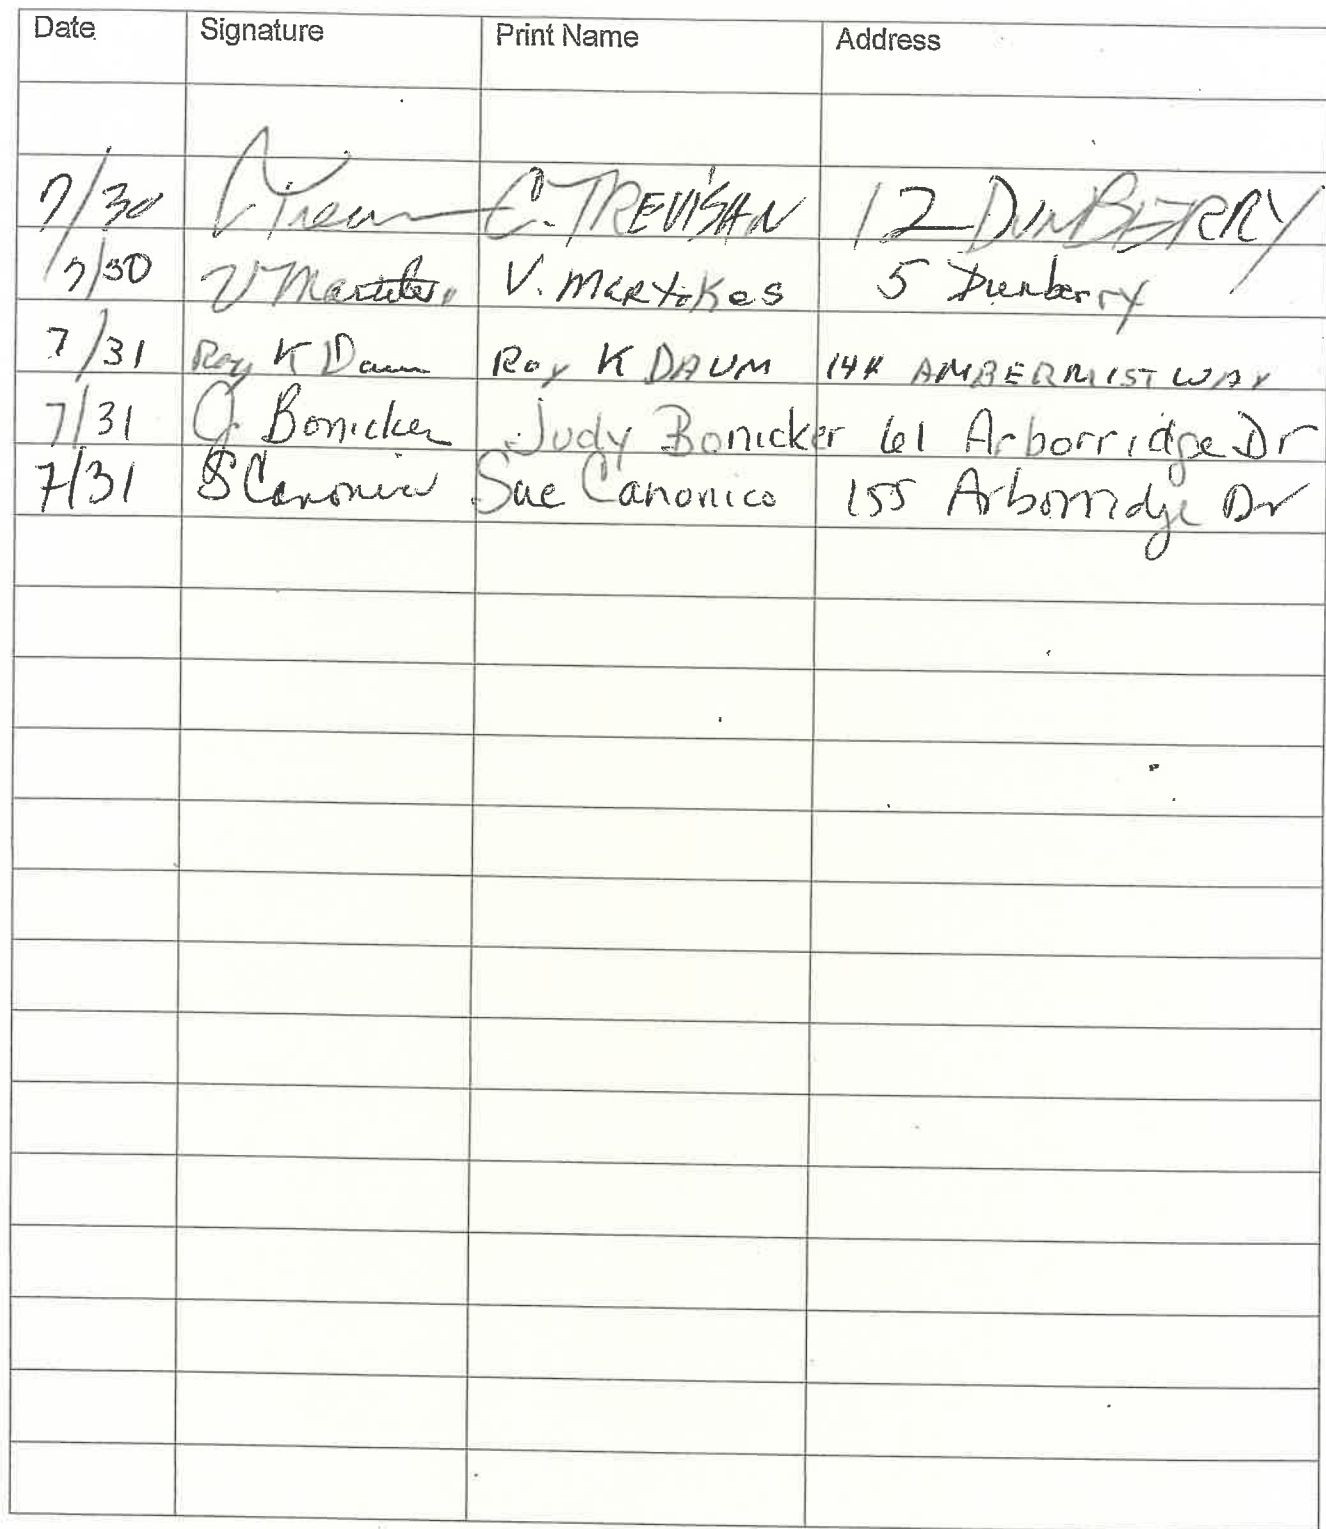 Date Signature Print Name Address
7/30 C. TREVISAN 12 DUNBERRY
7/30 V. Martokes 5 Dunberry
7/31 Roy K Daum Roy K DAUM AMBERMIST WAY
7/31 J. Bonicker Judy Bonicker 61 Arborridge Dr
7/31 S Canonico Sue Canonico 155 Arborridge Dr